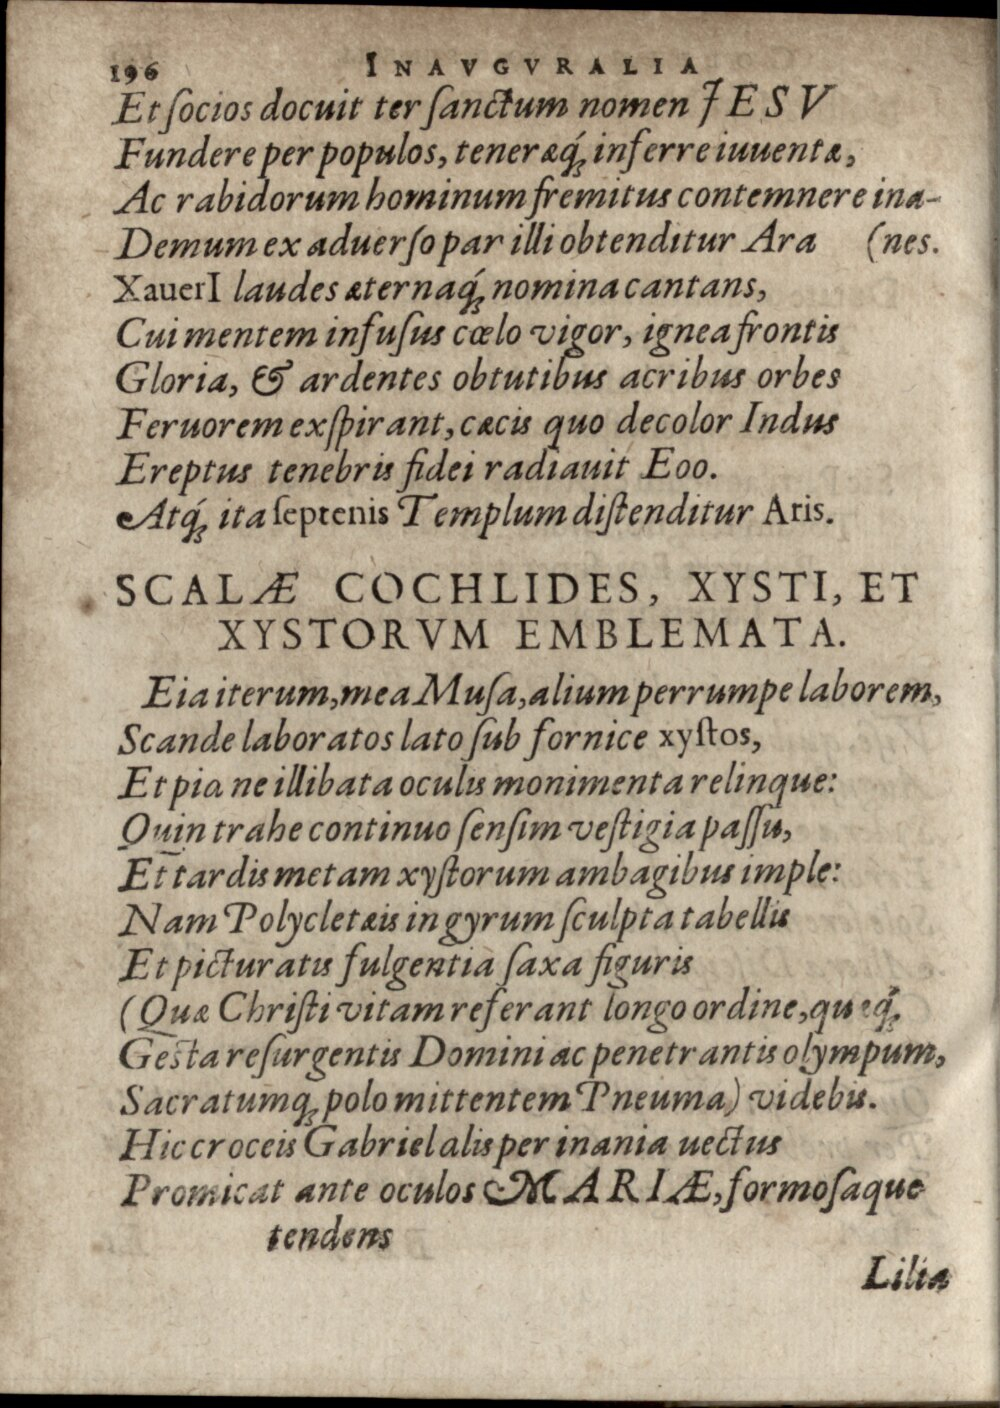 196 INAVGVRALIA
Et ſocios docuit ter ſanctum nomen JESV
Fundere per populos, teneræq́ꝫ inferre iuuentæ,
Ac rabidorum hominum fremitus contemnere ina-
Demum ex aduerſo par illi obtenditur Ara (nes.
XauerI laudes æternaq́ꝫ nomina cantans,
Cui mentem infuſus cœlo vigor, ignea frontis
Gloria, & ardentes obtutibus acribus orbes
Feruorem exſpirant, cæcis quo decolor Indus
Ereptus tenebris fidei radiauit Eoo.
Atq́ꝫ ita ſeptenis Templum diſtenditur Aris.
SCALÆ COCHLIDES, XYSTI, ET
XYSTORVM EMBLEMATA.
Eia iterum, mea Muſa, alium perrumpe laborem,
Scande laboratos lato ſub fornice xyſtos,
Et pia ne illibata oculis monimenta relinque:
Quin trahe continuo ſenſim veſtigia paſſu,
Et tardis metam xyſtorum ambagibus imple:
Nam Polycletæis in gyrum ſculpta tabellis
Et picturatis fulgentia ſaxa figuris
(Quæ Chriſti vitam referant longo ordine, quæq́ꝫ
Geſta reſurgentis Domini ac penetrantis olympum,
Sacratumqꝫ polo mittentem Pneuma) videbis.
Hic croceis Gabriel alis per inania uectus
Promicat ante oculos MARIÆ, formoſaque
tendens
Lilia